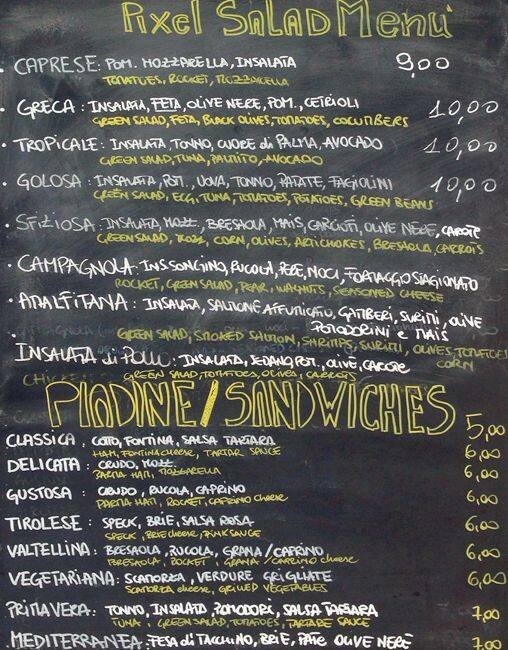 Pixel SALAD MENU
• CAPRESE: POM. MOZZARELLA, INSALATA 9,00
TOMATOES, ROCKET, MOZZARELLA
• GRECA: INSALATA, FETA, OLIVE NERE, POM., CETRIOLI 10,00
GREEN SALAD, FETA, BLACK OLIVES, TOMATOES, COCUMBERS
• TROPICALE: INSALATA, TONNO, CUORE di PALMA, AVOCADO 10,00
GREEN SALAD, TUNA, PALMITO, AVOCADO
• GOLOSA: INSALATA, POM., UOVA, TONNO, PATATE, FAGIOLINI 10,00
GREEN SALAD, EGG, TUNA, TOMATOES, POTATOES, GREEN BEANS
• SFIZIOSA: INSALATA, MOZZ, BRESAOLA, MAIS, CARCIOFI, OLIVE NERE, CAROTE
GREEN SALAD, MOZZ, CORN, OLIVES, ARTICHOKES, BRESAOLA, CARROTS
• CAMPAGNOLA: INS. SONGINO, RUCOLA, PERE, NOCI, FORMAGGIO STAGIONATO
ROCKET, GREEN SALAD, PEAR, WALNUTS, SEASONED CHEESE
• AMALFITANA: INSALATA, SALMONE AFFUMICATO, GAMBERI, SURIMI, OLIVE
POMODORINI e MAIS
GREEN SALAD, SMOKED SALMON, SHRIMPS, SURIMI, OLIVES, TOMATOES
CORN
• INSALATA di POLLO: INSALATA, SEDANO, POM., OLIVE, CAROTE
CHICKEN GREEN SALAD, TOMATOES, OLIVES, CARROTS
PIADINE/SANDWICHES
CLASSICA: COTTO, FONTINA, SALSA TARTARA 5,00
HAM, FONTINA CHEESE, TARTAR SAUCE
DELICATA: CRUDO, MOZZ. 6,00
PARMA HAM, MOZZARELLA 6,00
GUSTOSA: CRUDO, RUCOLA, CAPRINO 6,00
PARMA HAM, ROCKET, CAPRINO CHEESE
TIROLESE: SPECK, BRIE, SALSA ROSA 6,00
SPECK, BRIE CHEESE, PINK SAUCE
VALTELLINA: BRESAOLA, RUCOLA, GRANA/CAPRINO 6,00
BRESAOLA, ROCKET, GRANA/CAPRINO CHEESE
VEGETARIANA: SCAMORZA, VERDURE GRIGLIATE 6,00
SCAMORZA CHEESE, GRILLED VEGETABLES
PRIMAVERA: TONNO, INSALATA, POMODORI, SALSA TARTARA 7,00
TUNA, GREEN SALAD, TOMATOES, TARTARE SAUCE
MEDITERRANEA: FESA di TACCHINO, BRIE, PATE' OLIVE NERE 7,00